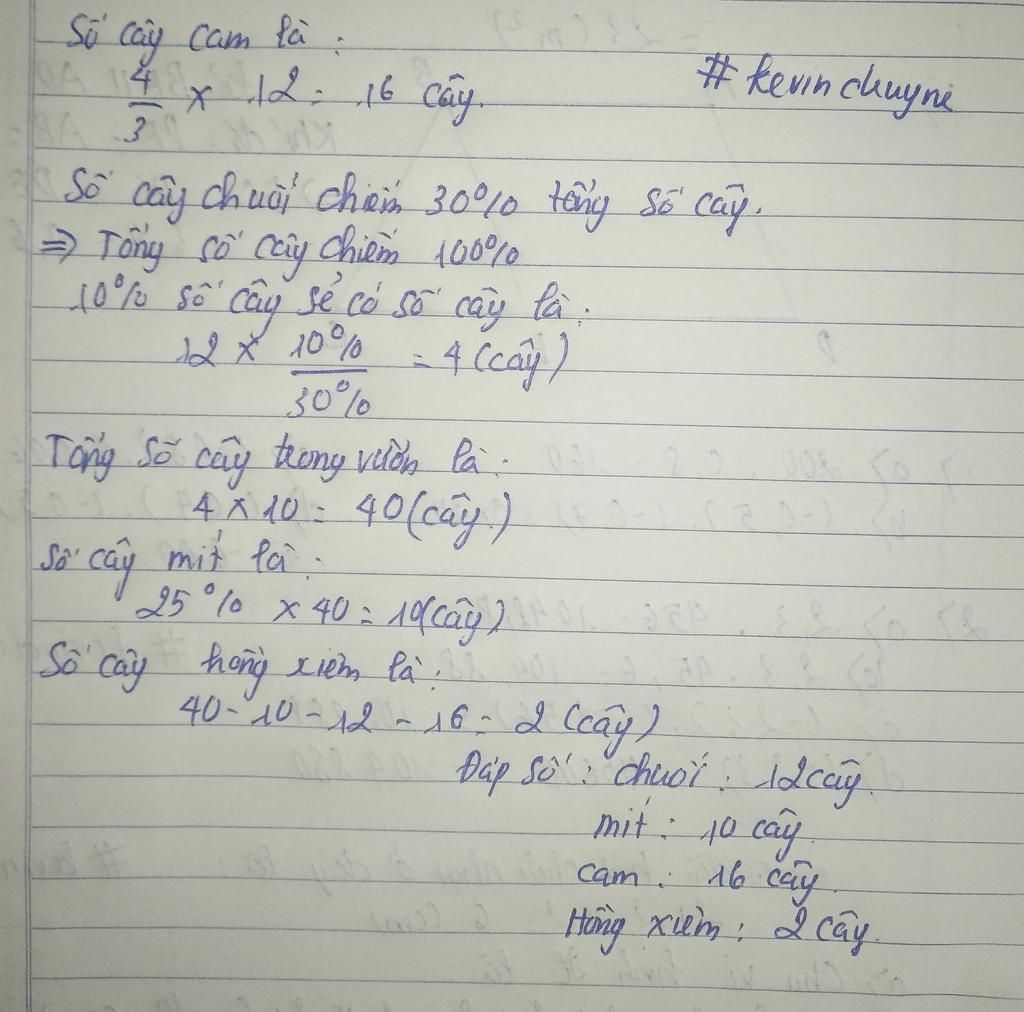 Số cây cam là :
4/3 x 12 = 16 cây.
# kevinchuyne
Số cây chuối chiếm 30% tổng số cây.
=> Tổng số cây chiếm 100%
10% số cây sẽ có số cây là :
12 x 10%/30% = 4 (cây)
Tổng số cây trong vườn là :
4 x 10 = 40 (cây)
Số cây mít là :
25% x 40 = 10 (cây)
Số cây hồng xiêm là :
40 - 10 - 12 - 16 = 2 (cây)
Đáp số : chuối : 12 cây.
mít : 10 cây
cam : 16 cây
Hồng xiêm : 2 cây.